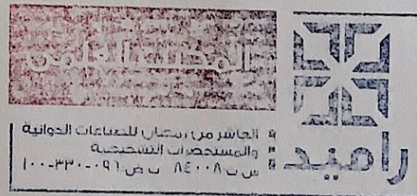 المكتب العلمى
راميدا
العاشر من رمضان للصناعات الدوائية
والمستحضرات التشخيصية
س ت ٨٤٠٠٨ ب ض ٠٩٦-٣٣٠-١٠٠